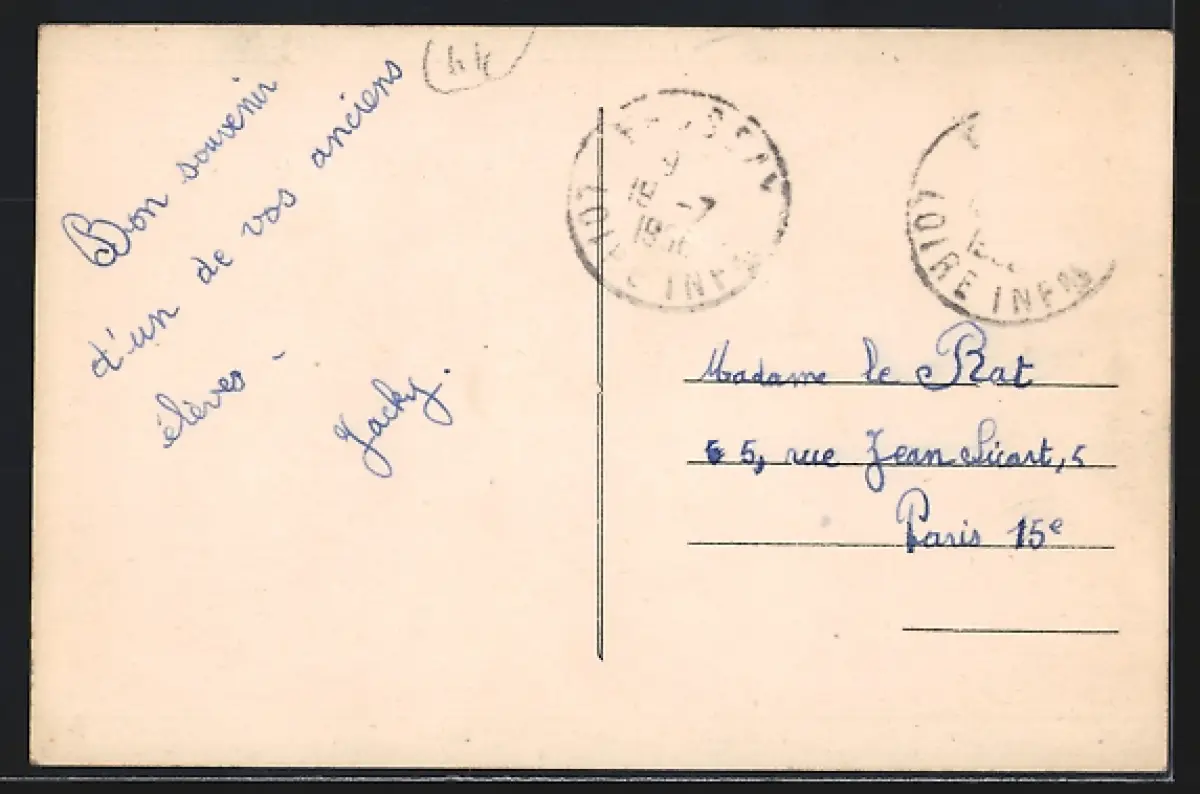 (44
Bon souvenir
d'un de vos anciens
élèves -
Jacky.
9
18 -7
LOIRE INFRE
LOIRE INFRE
Madame le Rat
5, rue Jean Sicart, 5
Paris 15e